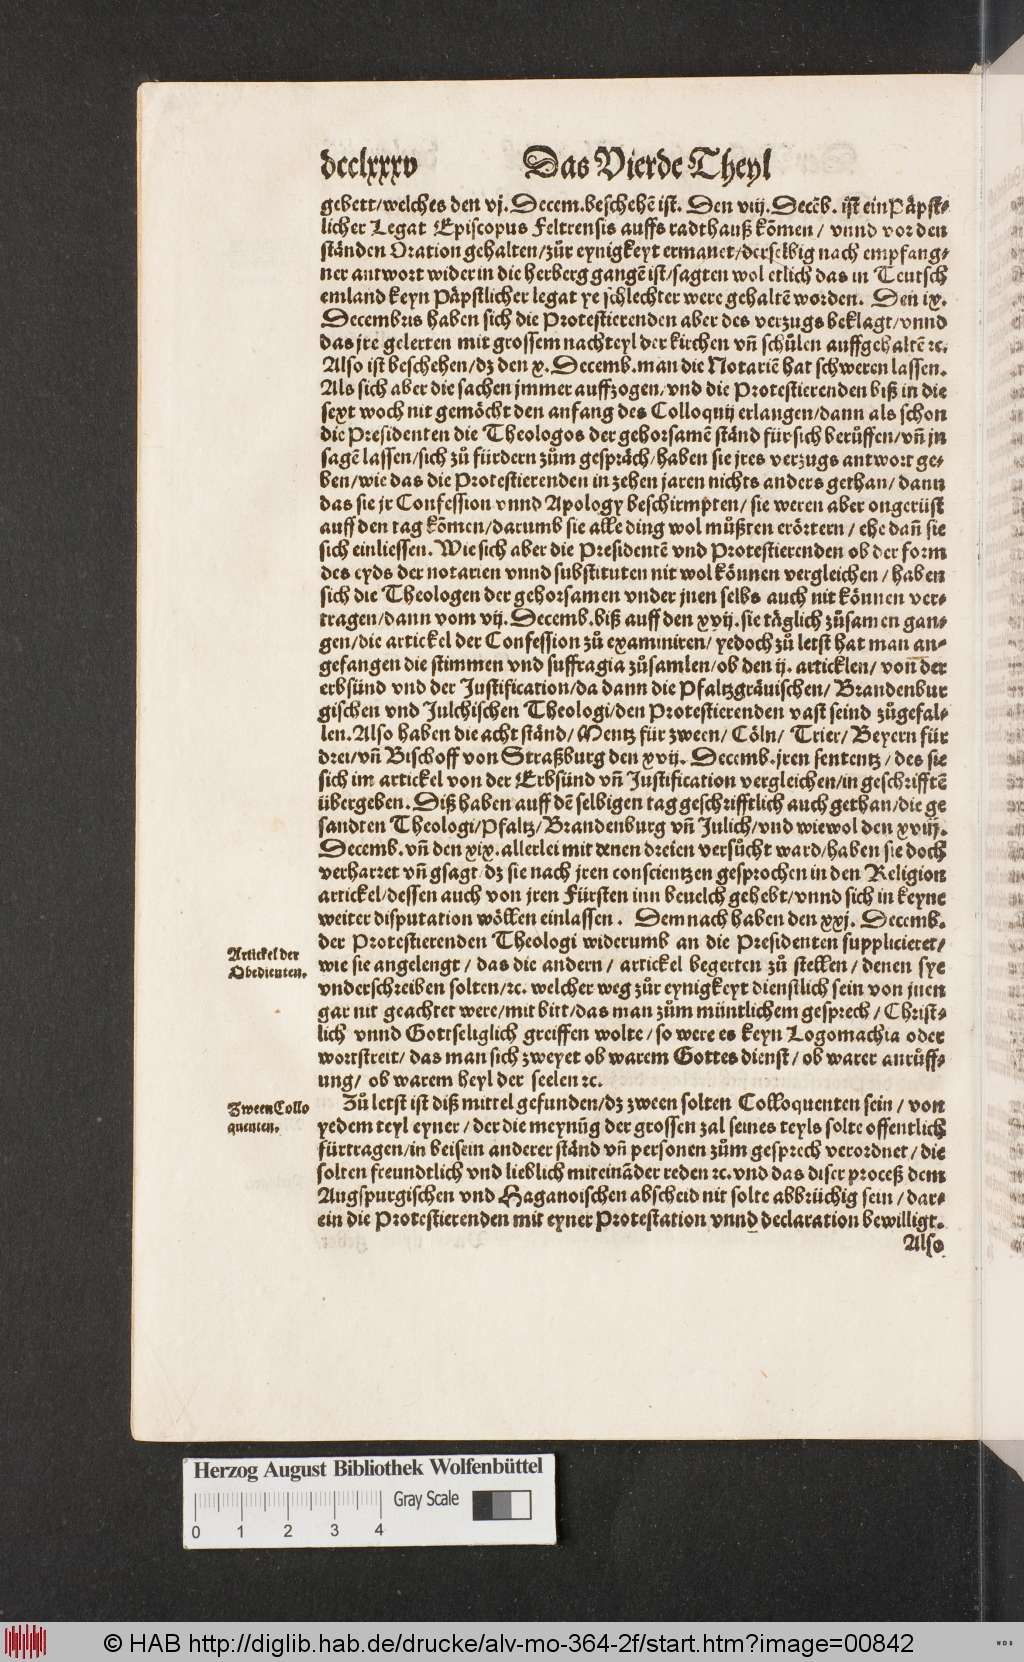 dcclxxxv Das Vierde Theyl
gebett/welches den vj. Decem.beschehẽ ist. Den viij. Decẽb. ist ein Päpst⸗
licher Legat Episcopus Feltrensis auffs radthauß kõmen/ vnnd vor den
ständen Oration gehalten/zůr eynigkeyt ermanet/derselbig nach empfang⸗
ner antwort wider in die herberg gangẽ ist/sagten wol etlich das in Teutsch
emland keyn Päpstlicher legat ye schlechter were gehaltẽ worden. Den ix.
Decembris haben sich die Protestierenden aber des verzugs beklagt/vnnd
das jre gelerten mit grossem nachteyl der kirchen vñ schůlen auffgehaltẽ ꝛc.
Also ist beschehen/dz den x. Decemb.man die Notariẽ hat schweren lassen.
Als sich aber die sachen jmmer auffzogen/vnd die Protestierenden biß in die
sext woch nit gemöcht den anfang des Colloquij erlangen/dann als schon
die Presidenten die Theologos der gehorsamẽ ständ für sich berůffen/vñ jn
sagẽ lassen/sich zů fürdern zům gespräch/haben sie jres verzugs antwort ge⸗
ben/wie das die Protestierenden in zehen jaren nichts anders gethan/ dann
das sie jr Confession vnnd Apology beschirmpten/ sie weren aber ongerüst
auff den tag kõmen/darumb sie alle ding wol můßten erörtern/ ehe dañ sie
sich einliessen. Wie sich aber die Presidentẽ vnd Protestierenden ob der form
des eyds der notarien vnnd substituten nit wol können vergleichen/ haben
sich die Theologen der gehorsamen vnder jnen selbs auch nit können ver⸗
tragen/dann vom vij. Decemb.biß auff den xvij.sie täglich zůsamen gan⸗
gen/die artickel der Confession zů examiniren/ yedoch zů letst hat man an⸗
gefangen die stimmen vnd suffragia zůsamlen/ob den ij. articklen/ von der
erbsünd vnd der Justification/da dann die Pfaltzgrävischen/ Brandenbur
gischen vnd Julchischen Theologi/den Protestierenden vast seind zůgefal⸗
len.Also haben die acht ständ/Mentz für zween/ Cöln/ Trier/ Beyern für
drei/vñ Bischoff von Straßburg den xvij. Decemb.jren sententz/ des sie
sich im artickel von der Erbsünd vñ Justification vergleichen/in geschrifftẽ
übergeben. Diß haben auff dẽ selbigen tag geschrifftlich auch gethan/die ge
sandten Theologi/Pfaltz/Brandenburg vñ Julich/vnd wiewol den xviij.
Decemb.vñ den xix.allerlei mit denen dreien versůcht ward/haben sie doch
verharret vñ gsagt/dz sie nach jren conscientzen gesprochen in den Religion
artickel/dessen auch von jren Fürsten inn bevelch gehebt/vnnd sich in keyne
weiter disputation wöllen einlassen. Demnach haben den xxj. Decemb.
der Protestierenden Theologi widerumb an die Presidenten supplicieret/
Artickel der
Obedienten.
wie sie angelengt/ das die andern/ artickel begerten zů stellen/ denen sye
vnderschreiben solten/ꝛc. welcher weg zůr eynigkeyt dienstlich sein von jnen
gar nit geachtet were/mit bitt/das man zům müntlichem gesprech/ Christ⸗
lich vnnd Gottseliglich greiffen wolte/ so were es keyn Logomachia oder
wortstreit/ das man sich zweyet ob warem Gottes dienst/ ob warer anrůff⸗
ung/ ob warem heyl der seelen ꝛc.
Zween Collo
quenten.
Zů letst ist diß mittel gefunden/dz zween solten Colloquenten sein/ von
yedem teyl eyner/ der die meynũg der grossen zal seines teyls solte offentlich
fürtragen/in beisein anderer ständ vñ personen zům gesprech verordnet/ die
solten freundtlich vnd lieblich miteinãder reden ꝛc.vnd das diser proceß dem
Augspurgischen vnd Haganoischen abscheid nit solte abbrüchig sein/ dar⸗
ein die Protestierenden mit eyner Protestation vnnd declaration bewilligt.
Also
Herzog August Bibliothek Wolfenbüttel
Gray Scale
0 1 2 3 4
© HAB http://diglib.hab.de/drucke/alv-mo-364-2f/start.htm?image=00842